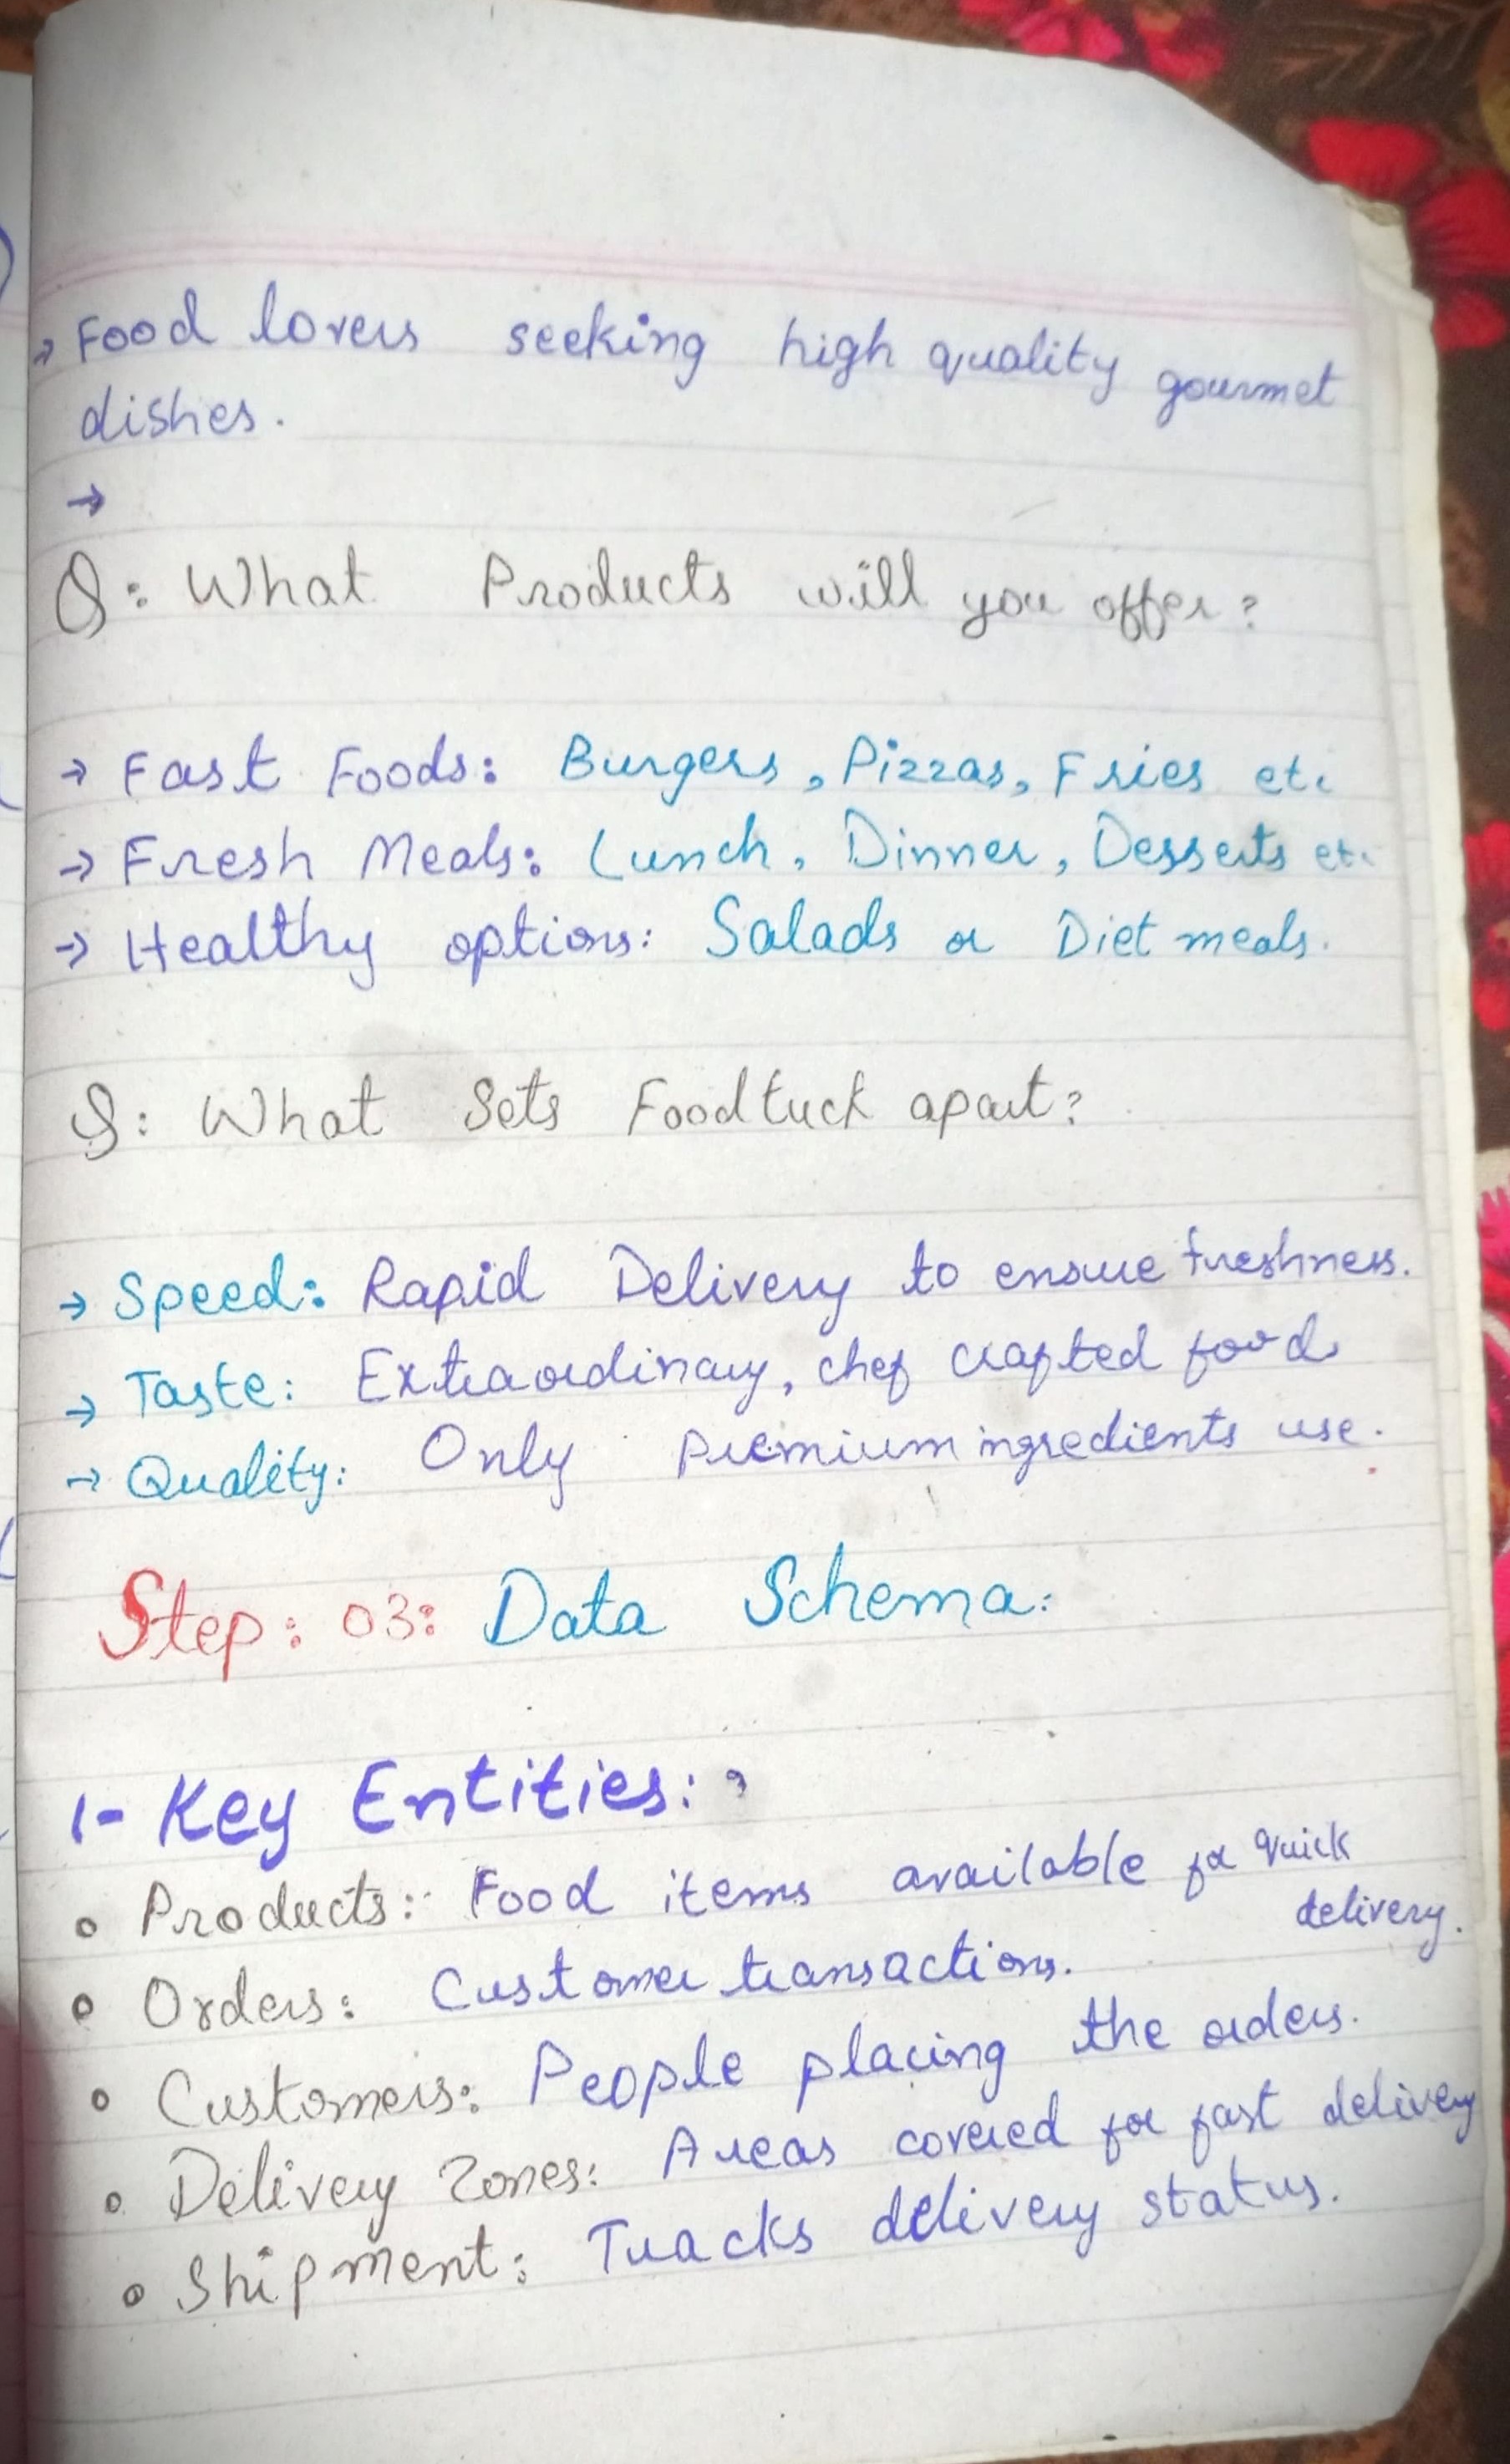 → Food lovers seeking high quality gourmet
dishes.
→
Q: What Products will you offer?
→ Fast Foods: Burgers, Pizzas, Fries etc
→ Fresh Meals: Lunch, Dinner, Desserts etc
→ Healthy options: Salads or Diet meals.
Q: What Sets Foodtuck apart?
→ Speed: Rapid Delivery to ensure freshness.
→ Taste: Extraordinary, chef crafted food
→ Quality: Only premium ingredients use.
Step: 03: Data Schema:
1- Key Entities:
• Products: Food items available for quick
delivery.
• Orders: Customer transactions.
• Customers: People placing the orders.
• Delivery Zones: Areas covered for fast delivery
• Shipment: Tracks delivery status.